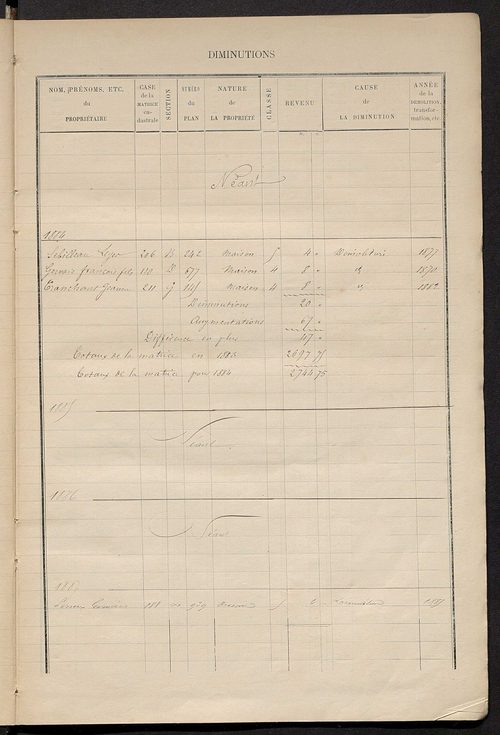 DIMINUTIONS
NOM, PRÉNOMS, ETC. du PROPRIÉTAIRE
CASE de la MATRICE cadastrale
SECTION
NUMÉRO du PLAN
NATURE de LA PROPRIÉTÉ
CLASSE
REVENU
CAUSE de LA DIMINUTION
ANNÉE de la DÉMOLITION, transformation, etc.
Néant
1884
206 B 242 maison 5 4 " Démolition 1877
Gervais françois fils 110 D 677 Maison 4 8 " id 1870
211 Maison 4 8 " id 1882
Diminutions 20 "
Augmentations 67 "
Différence en plus 47 "
Totaux de la matrice en 1883 2697.75
Totaux de la matrice pour 1884 2744.75
1885
Néant
1886
Néant
188 maison